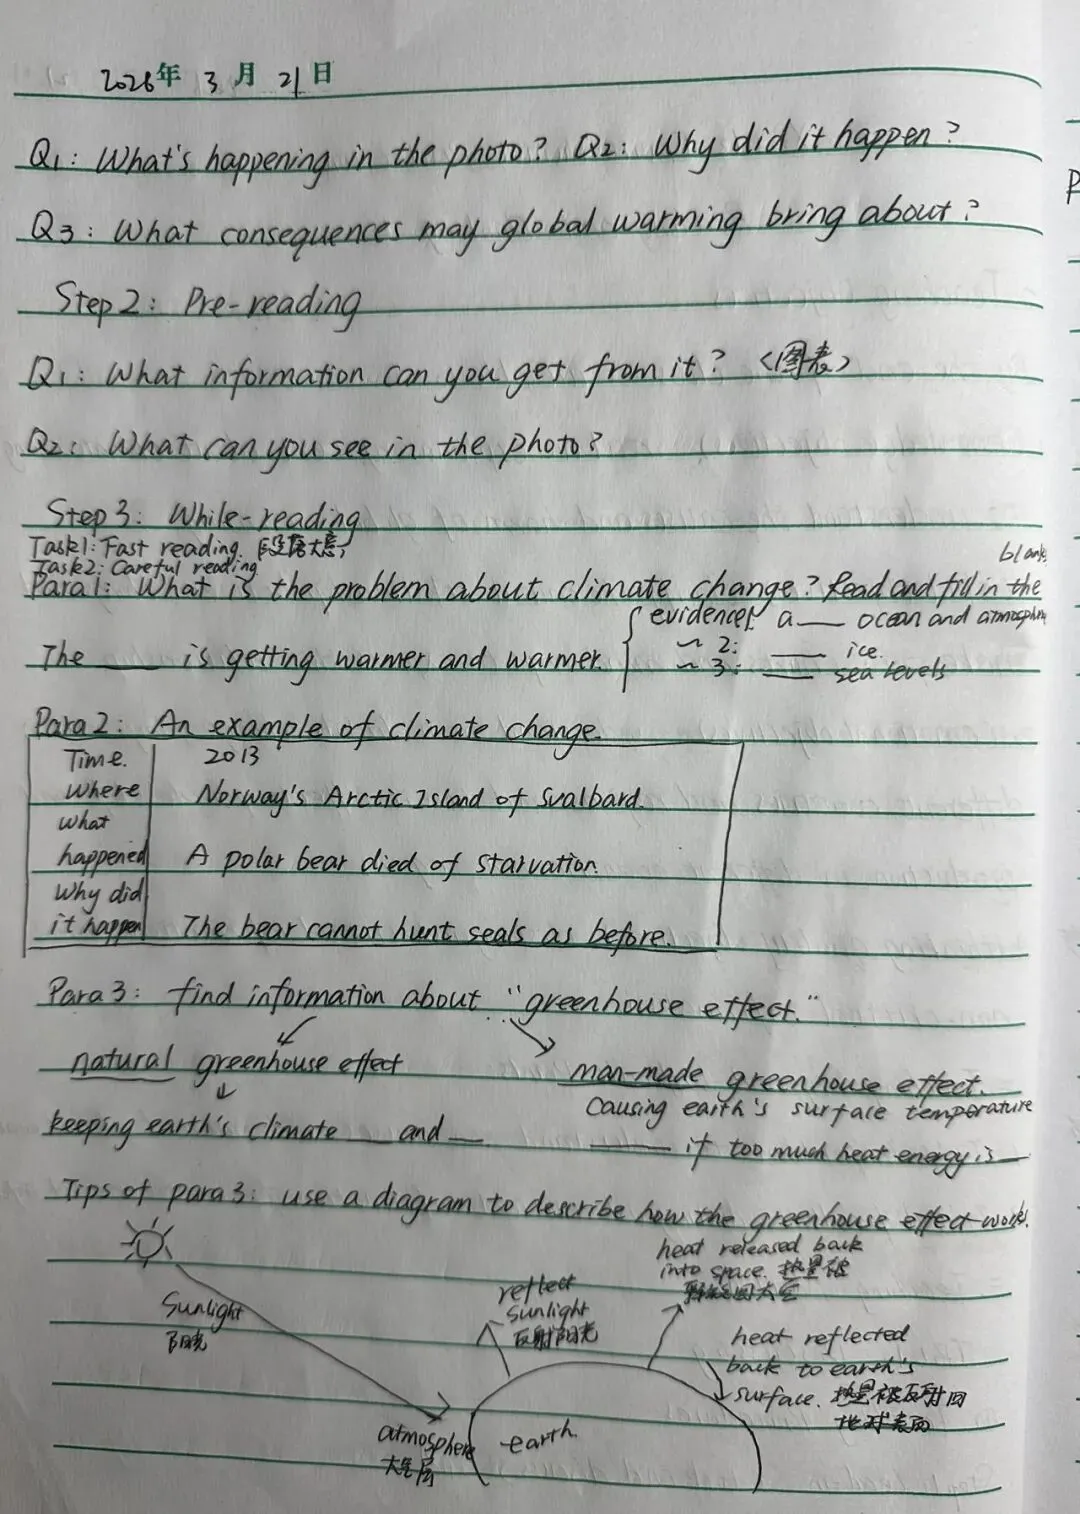 2026年 3月 21日
Q1: What's happening in the photo? Q2: Why did it happen?
Q3: What consequences may global warming bring about?
Step2: Pre-reading
Q1: What information can you get from it? (图表)
Q2: What can you see in the photo?
Step3: While-reading
Task1: Fast reading. 段落大意
Task2: Careful reading
Para1: What is the problem about climate change? Read and fill in the blank
The ___ is getting warmer and warmer.
evidence1: a ___ ocean and atmosphere
~ 2: ___ ice.
~ 3: ___ sea levels
Para2: An example of climate change.
Time. 2013
Where Norway's Arctic Island of Svalbard.
What happened A polar bear died of starvation.
Why did it happen The bear cannot hunt seals as before.
Para3: find information about "greenhouse effect."
natural greenhouse effect
keeping earth's climate ___ and ___
man-made greenhouse effect.
Causing earth's surface temperature
___ if too much heat energy is ___
Tips of para3: use a diagram to describe how the greenhouse effect works.
Sunlight
阳光
atmosphere
大气层
earth.
reflect
sunlight
反射阳光
heat released back
into space. 热量被
释放回太空
heat reflected
back to earth's
surface. 热量被反射回
地球表面